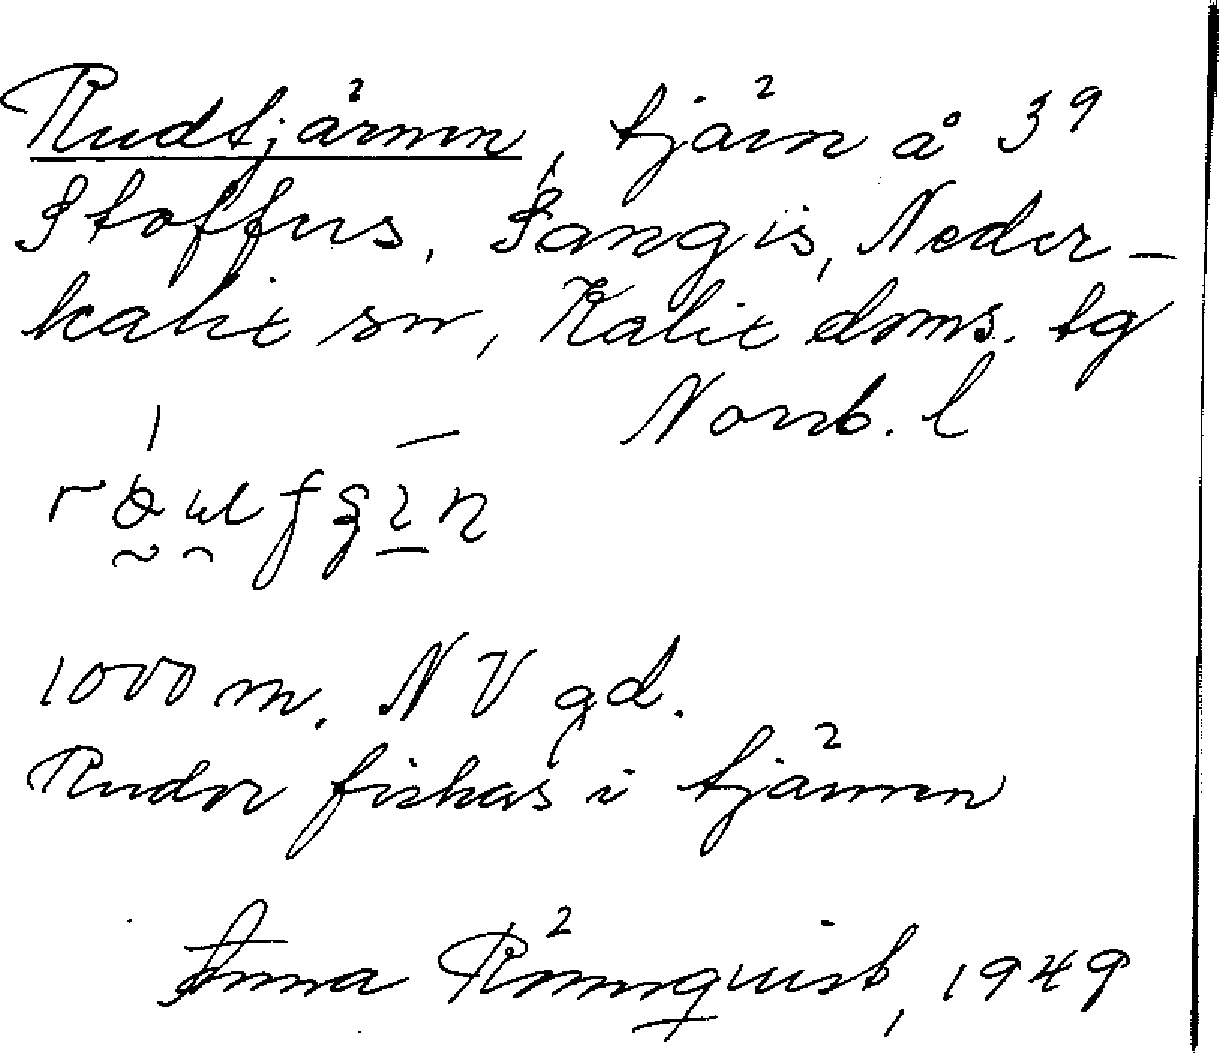 Rudtjärnen, tjärn å 3⁹
Stoffers, Sangis, Neder-
kalix sn, Kalix doms. tg
Norrb. l
1000 m. NV gd.
Rudor fiskas i tjärnen
Anna Rönnquist, 1949